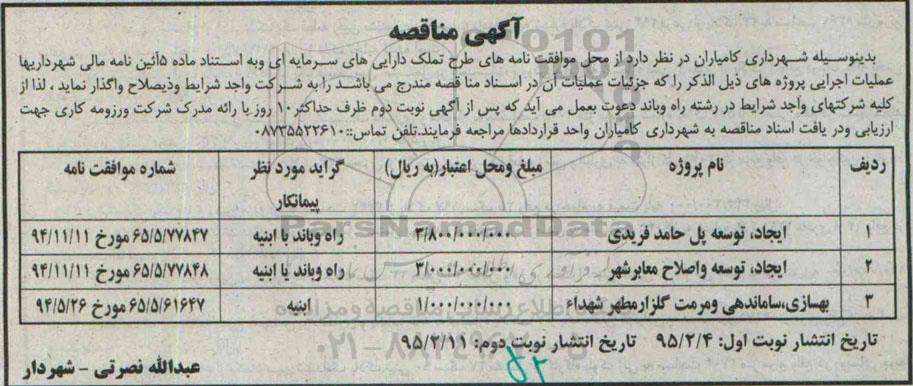 آگهی مناقصه
بدینوسیله شهرداری کامیاران در نظر دارد از محل موافقت نامه های طرح تملک دارایی های سرمایه ای وبه استناد ماده ۵آئین نامه مالی شهرداریها
عملیات اجرایی پروژه های ذیل الذکر را که جزئیات عملیات آن در اسناد منا قصه مندرج می باشد را به شرکت واجد شرایط وذیصلاح واگذار نماید ، لذا از
کلیه شرکتهای واجد شرایط در رشته راه وباند دعوت بعمل می آید که پس از آگهی نوبت دوم ظرف حداکثر۱۰ روز با رائه مدرک شرکت ورزومه کاری جهت
ارزیابی ودر یافت اسناد مناقصه به شهرداری کامیاران واحد قراردادها مراجعه فرمایند.تلفن تماس::۰۸۷۳۵۵۲۲۶۱۰
ردیف نام پروژه مبلغ ومحل اعتبار(به ریال) گراید مورد نظر پیمانکار شماره موافقت نامه
۱ ایجاد، توسعه پل حامد فریدی ۳/۸۰۰/۰۰۰/۰۰۰ راه وباند یا ابنیه ۶۵/۵/۷۷۸۴۷ مورخ ۹۴/۱۱/۱۱
۲ ایجاد، توسعه واصلاح معابرشهر ۳/۰۰۰/۰۰۰/۰۰۰ راه وباند یا ابنیه ۶۵/۵/۷۷۸۴۸ مورخ ۹۴/۱۱/۱۱
۳ بهسازی،ساماندهی ومرمت گلزارمطهر شهداء ۱/۰۰۰/۰۰۰/۰۰۰ ابنیه ۶۵/۵/۶۱۶۴۷ مورخ ۹۴/۵/۲۶
تاریخ انتشار نوبت اول: ۹۵/۲/۴ تاریخ انتشار نوبت دوم: ۹۵/۲/۱۱
عبدالله نصرتی - شهردار
ParsNamadData